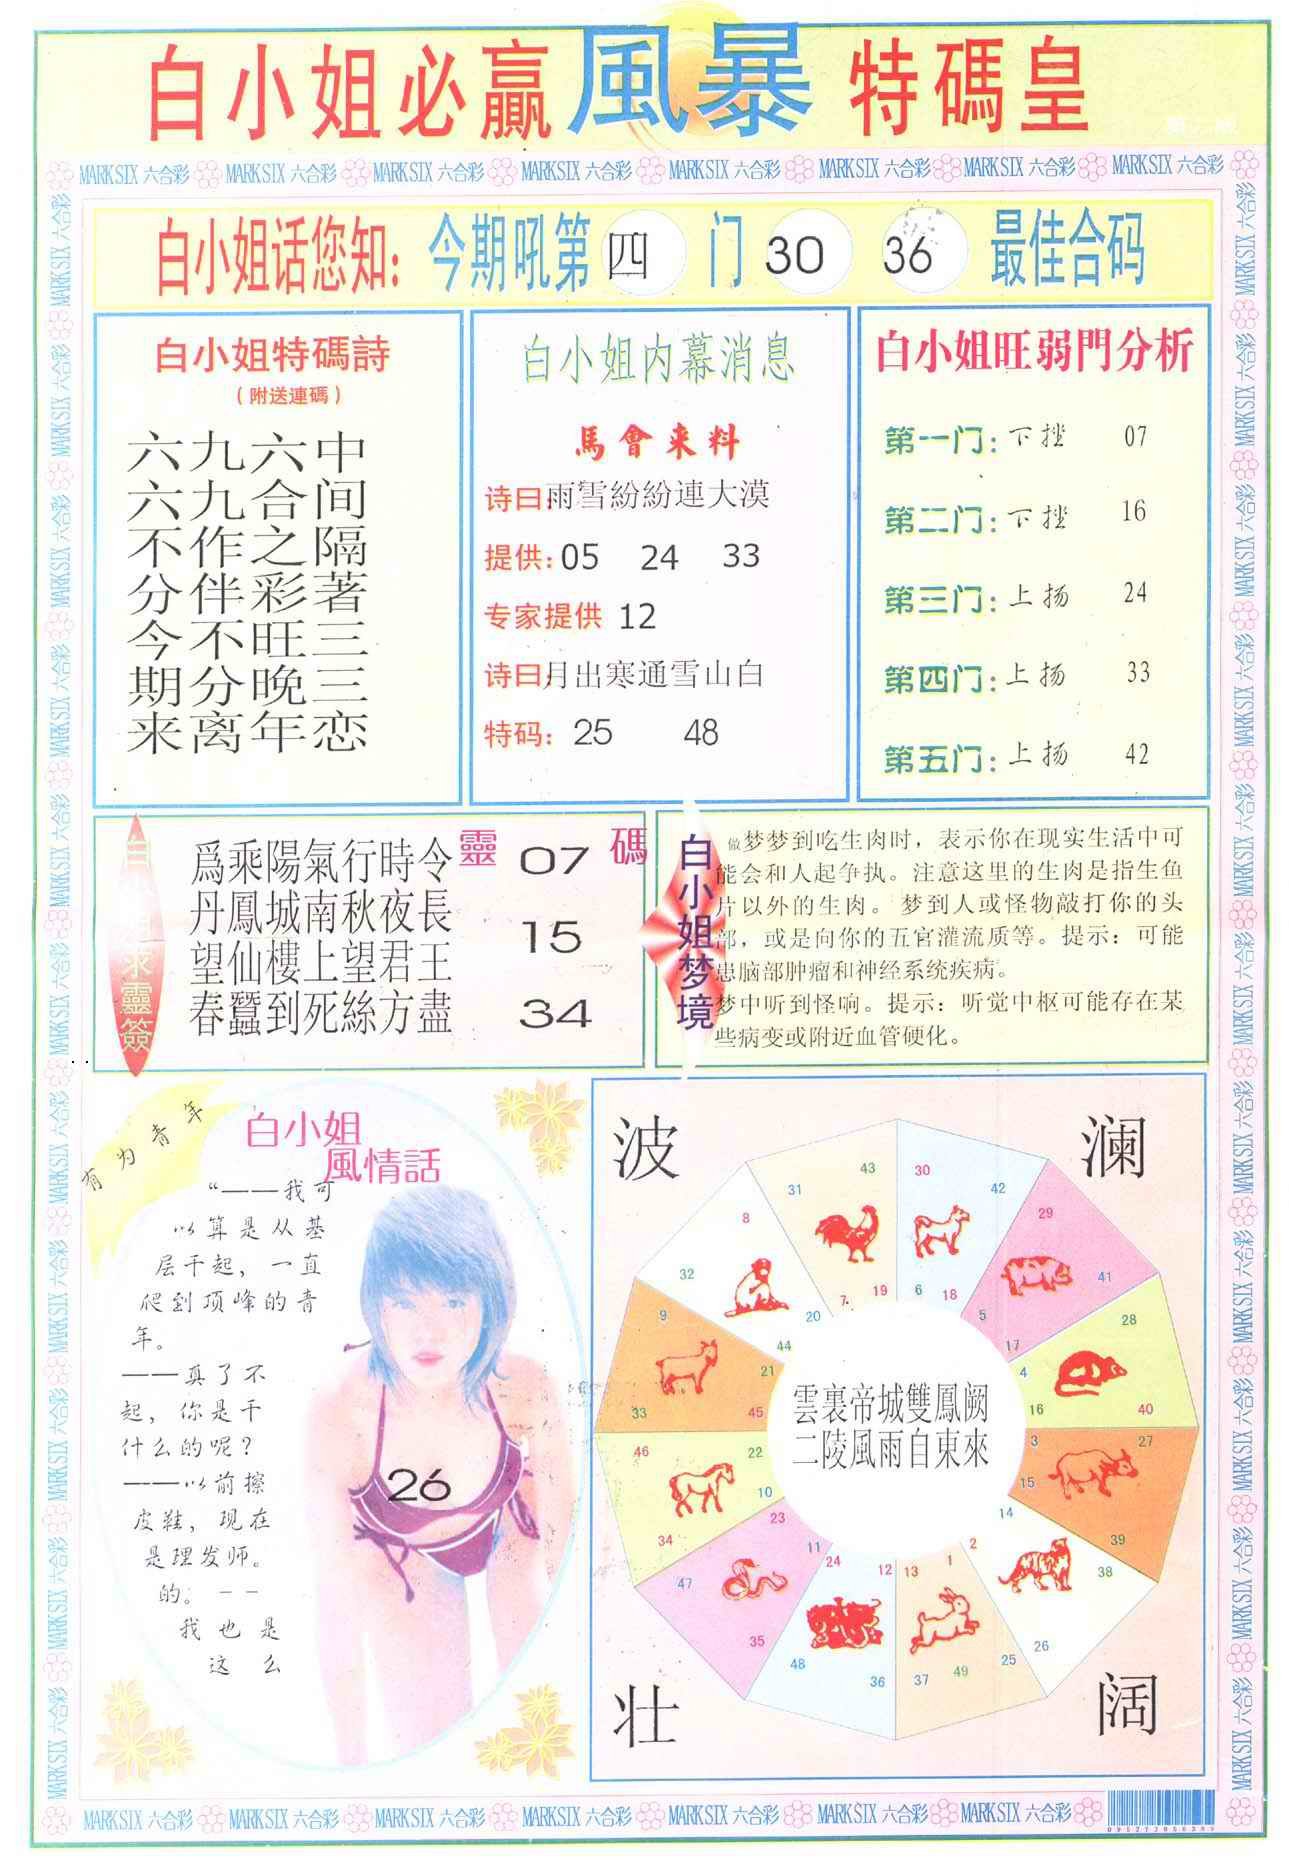 白小姐必贏風暴特碼皇
MARK SIX 六合彩 MARK SIX 六合彩 MARK SIX 六合彩 MARK SIX 六合彩 MARK SIX 六合彩 MARK SIX 六合彩 MARK SIX 六合彩 MARK SIX 六合彩
白小姐话您知：今期吼第四门 30 36 最佳合码
白小姐特碼詩
（附送連碼）
六九六中
六九合间
不作之隔
分伴彩著
今不旺三
期分晚三
来离年恋
白小姐内幕消息
馬會来料
诗曰：雨雪紛紛連大漠
提供：05 24 33
专家提供 12
诗曰：月出寒通雪山白
特码：25 48
白小姐旺弱門分析
第一门：下挫 07
第二门：下挫 16
第三门：上扬 24
第四门：上扬 33
第五门：上扬 42
白小姐求靈簽
爲乘陽氣行時令
丹鳳城南秋夜長
望仙樓上望君王
春蠶到死絲方盡
靈碼
07
15
34
白小姐梦境
做梦梦到吃生肉时，表示你在现实生活中可
能会和人起争执。注意这里的生肉是指生鱼
片以外的生肉。梦到人或怪物敲打你的头
部，或是向你的五官灌流质等。提示：可能
患脑部肿瘤和神经系统疾病。
梦中听到怪响。提示：听觉中枢可能存在某
些病变或附近血管硬化。
有为青年
白小姐
風情話
“——我可
以算是从基
层干起，一直
爬到顶峰的青
年。
——真了不
起，你是干
什么的呢？
——以前擦
皮鞋，现在
是理发师。
的。——
我也是
这么
26
波
澜
壮
阔
43 31 7 19
30 42 6 18
29 41 5 17
28 4 16 40
3 27 15 39
14 2 38 26
1 13 25 37 49
24 12 48 36
23 11 47 35
46 22 10 34
9 21 33 45
8 32 20 44
雲裏帝城雙鳳阙
二陵風雨自東來
MARK SIX 六合彩 MARK SIX 六合彩 MARK SIX 六合彩 MARK SIX 六合彩 MARK SIX 六合彩 MARK SIX 六合彩 MARK SIX 六合彩